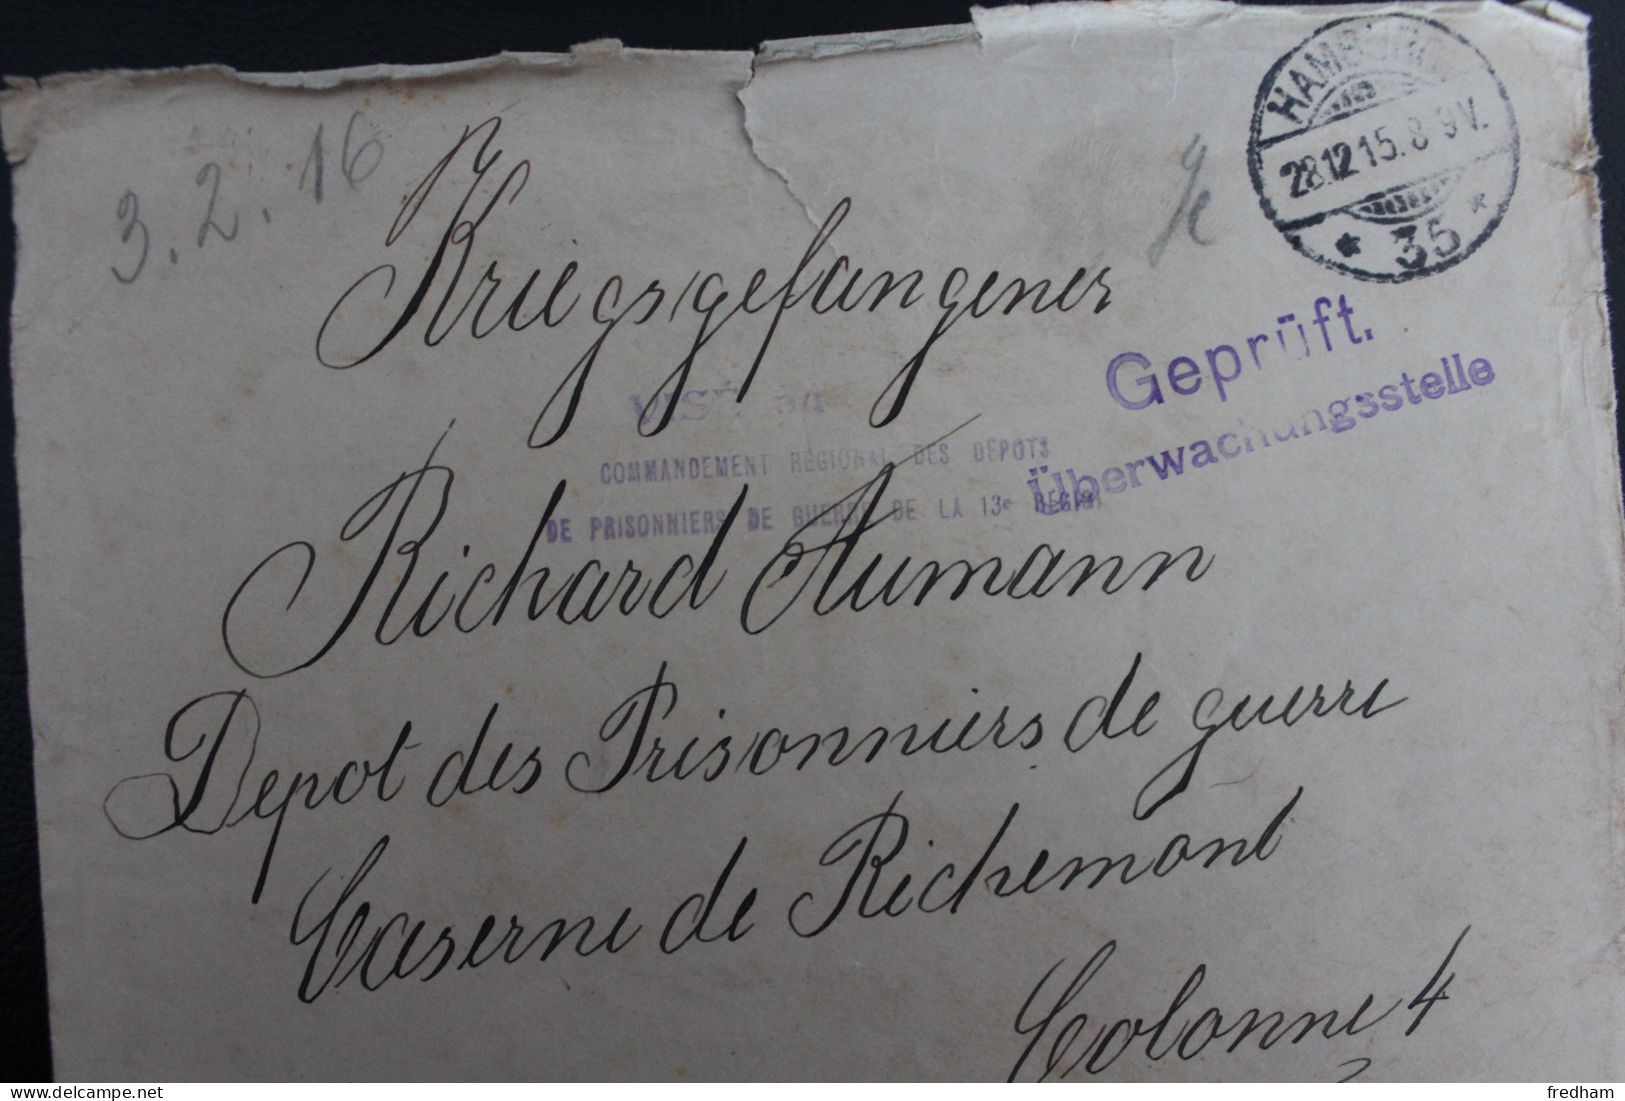 3.2.16
HAMBURG
28.12.15.8-9V.
* 35 *
Kriegsgefangener
Geprüft.
Überwachungsstelle
VISÉ
COMMANDEMENT RÉGIONAL DES DÉPOTS
DE PRISONNIERS DE GUERRE DE LA 13e RÉGION
Richard Aumann
Depot des Prisonniers de guerre
Caserne de Richemont
Colonne 4
fredharm
delcampe.net